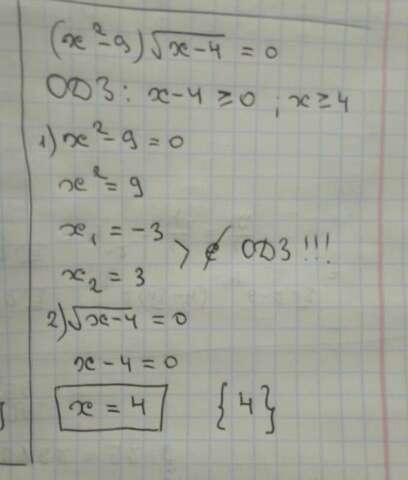 (x²-9)√x-4 = 0
ОДЗ: x-4 ≥ 0 ; x ≥ 4
1) x²-9 = 0
x² = 9
x₁ = -3
x₂ = 3 > ∉ ОДЗ !!!
2) √x-4 = 0
x-4 = 0
x = 4 {4}